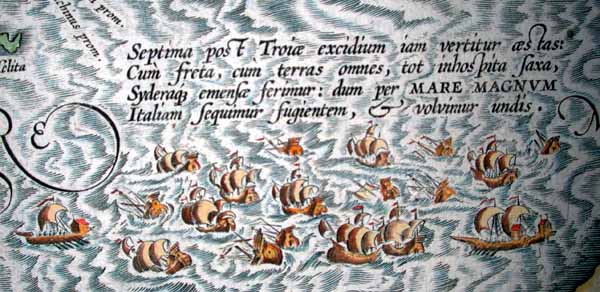 chinus prom.
prom.
Septima post Troiæ excidium iam vertitur æstas:
Cum freta, cum terras omnes, tot inhospita saxa,
Syderaq; emensæ ferimur: dum per MARE MAGNVM
Italiam sequimur fugientem, & volvimur undis.